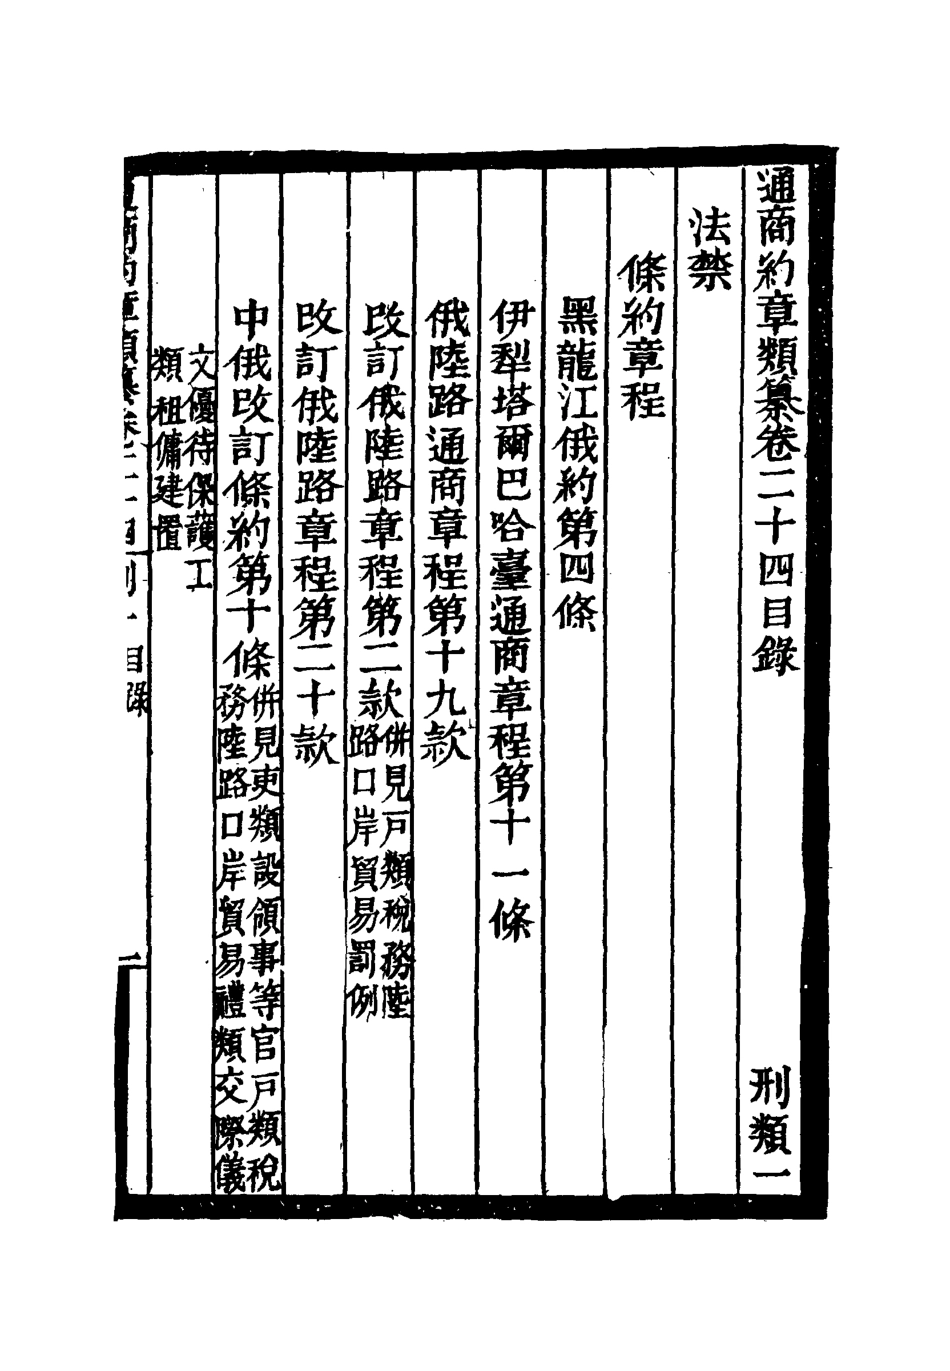 通商約章類纂卷二十四目錄 刑類一
法禁
條約章程
黑龍江俄約第四條
伊犁塔爾巴哈臺通商章程第十一條
俄陸路通商章程第十九款
改訂俄陸路章程第二款併見戶類稅務陸
路口岸貿易罰例
改訂俄陸路章程第二十款
中俄改訂條約第十條併見吏類設領事等官戶類稅
務陸路口岸貿易禮類交際儀
文優待保護工
類租傭建置
通商約章類纂卷二十四刑一目錄 一